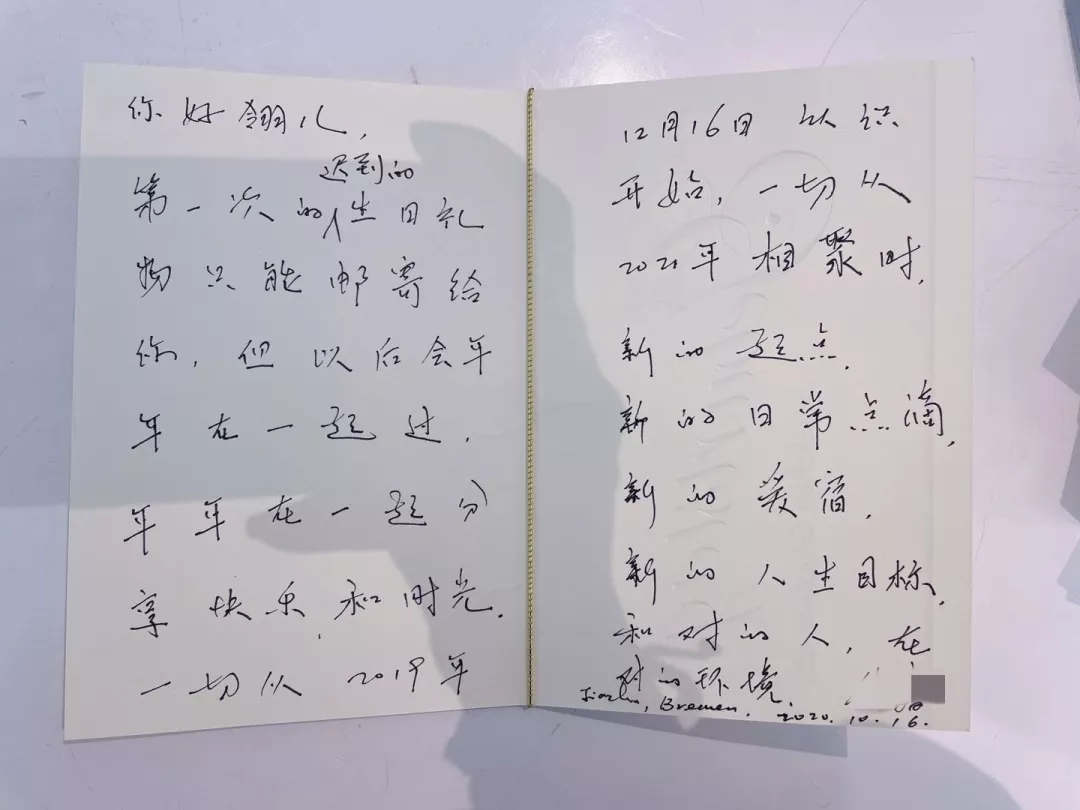 你好翎儿,
迟到的
第一次的生日礼
物只能邮寄给
你,但以后会年
年在一起过,
年年在一起分
享快乐,和时光.
一切从 2019年
12月16日 认识
开始,一切从
2021年 相聚时,
新的起点,
新的日常点滴,
新的爱宿,
新的人生目标,
和对的人,在
对的环境.
Bremen, 2020.10.16.